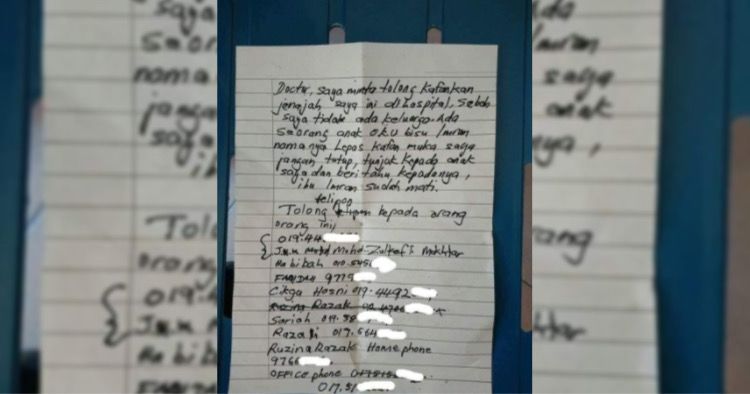 Doctor, saya minta tolong kafankan
jenajah saya ini di hospital, sebab
saya tidak ada keluarga. Ada
seorang anak OKU bisu Imran
nama nya Lepas kafan muka saya
jangan tutup, tunjuk kepada anak
saya dan beri tahu kepadanya,
ibu Imran sudah mati.
telipon
Tolong kepada orang
orang ini,
019.44
Mohd Zulkafli Mokhtar
Habibah 010.545
FARIDAH 9775
Cikgu Hasni 019.4492
Razak
Sariah 019.58
Razali 017.564
Ruzina Razak Home phone
9766
OFFICE phone
017.51